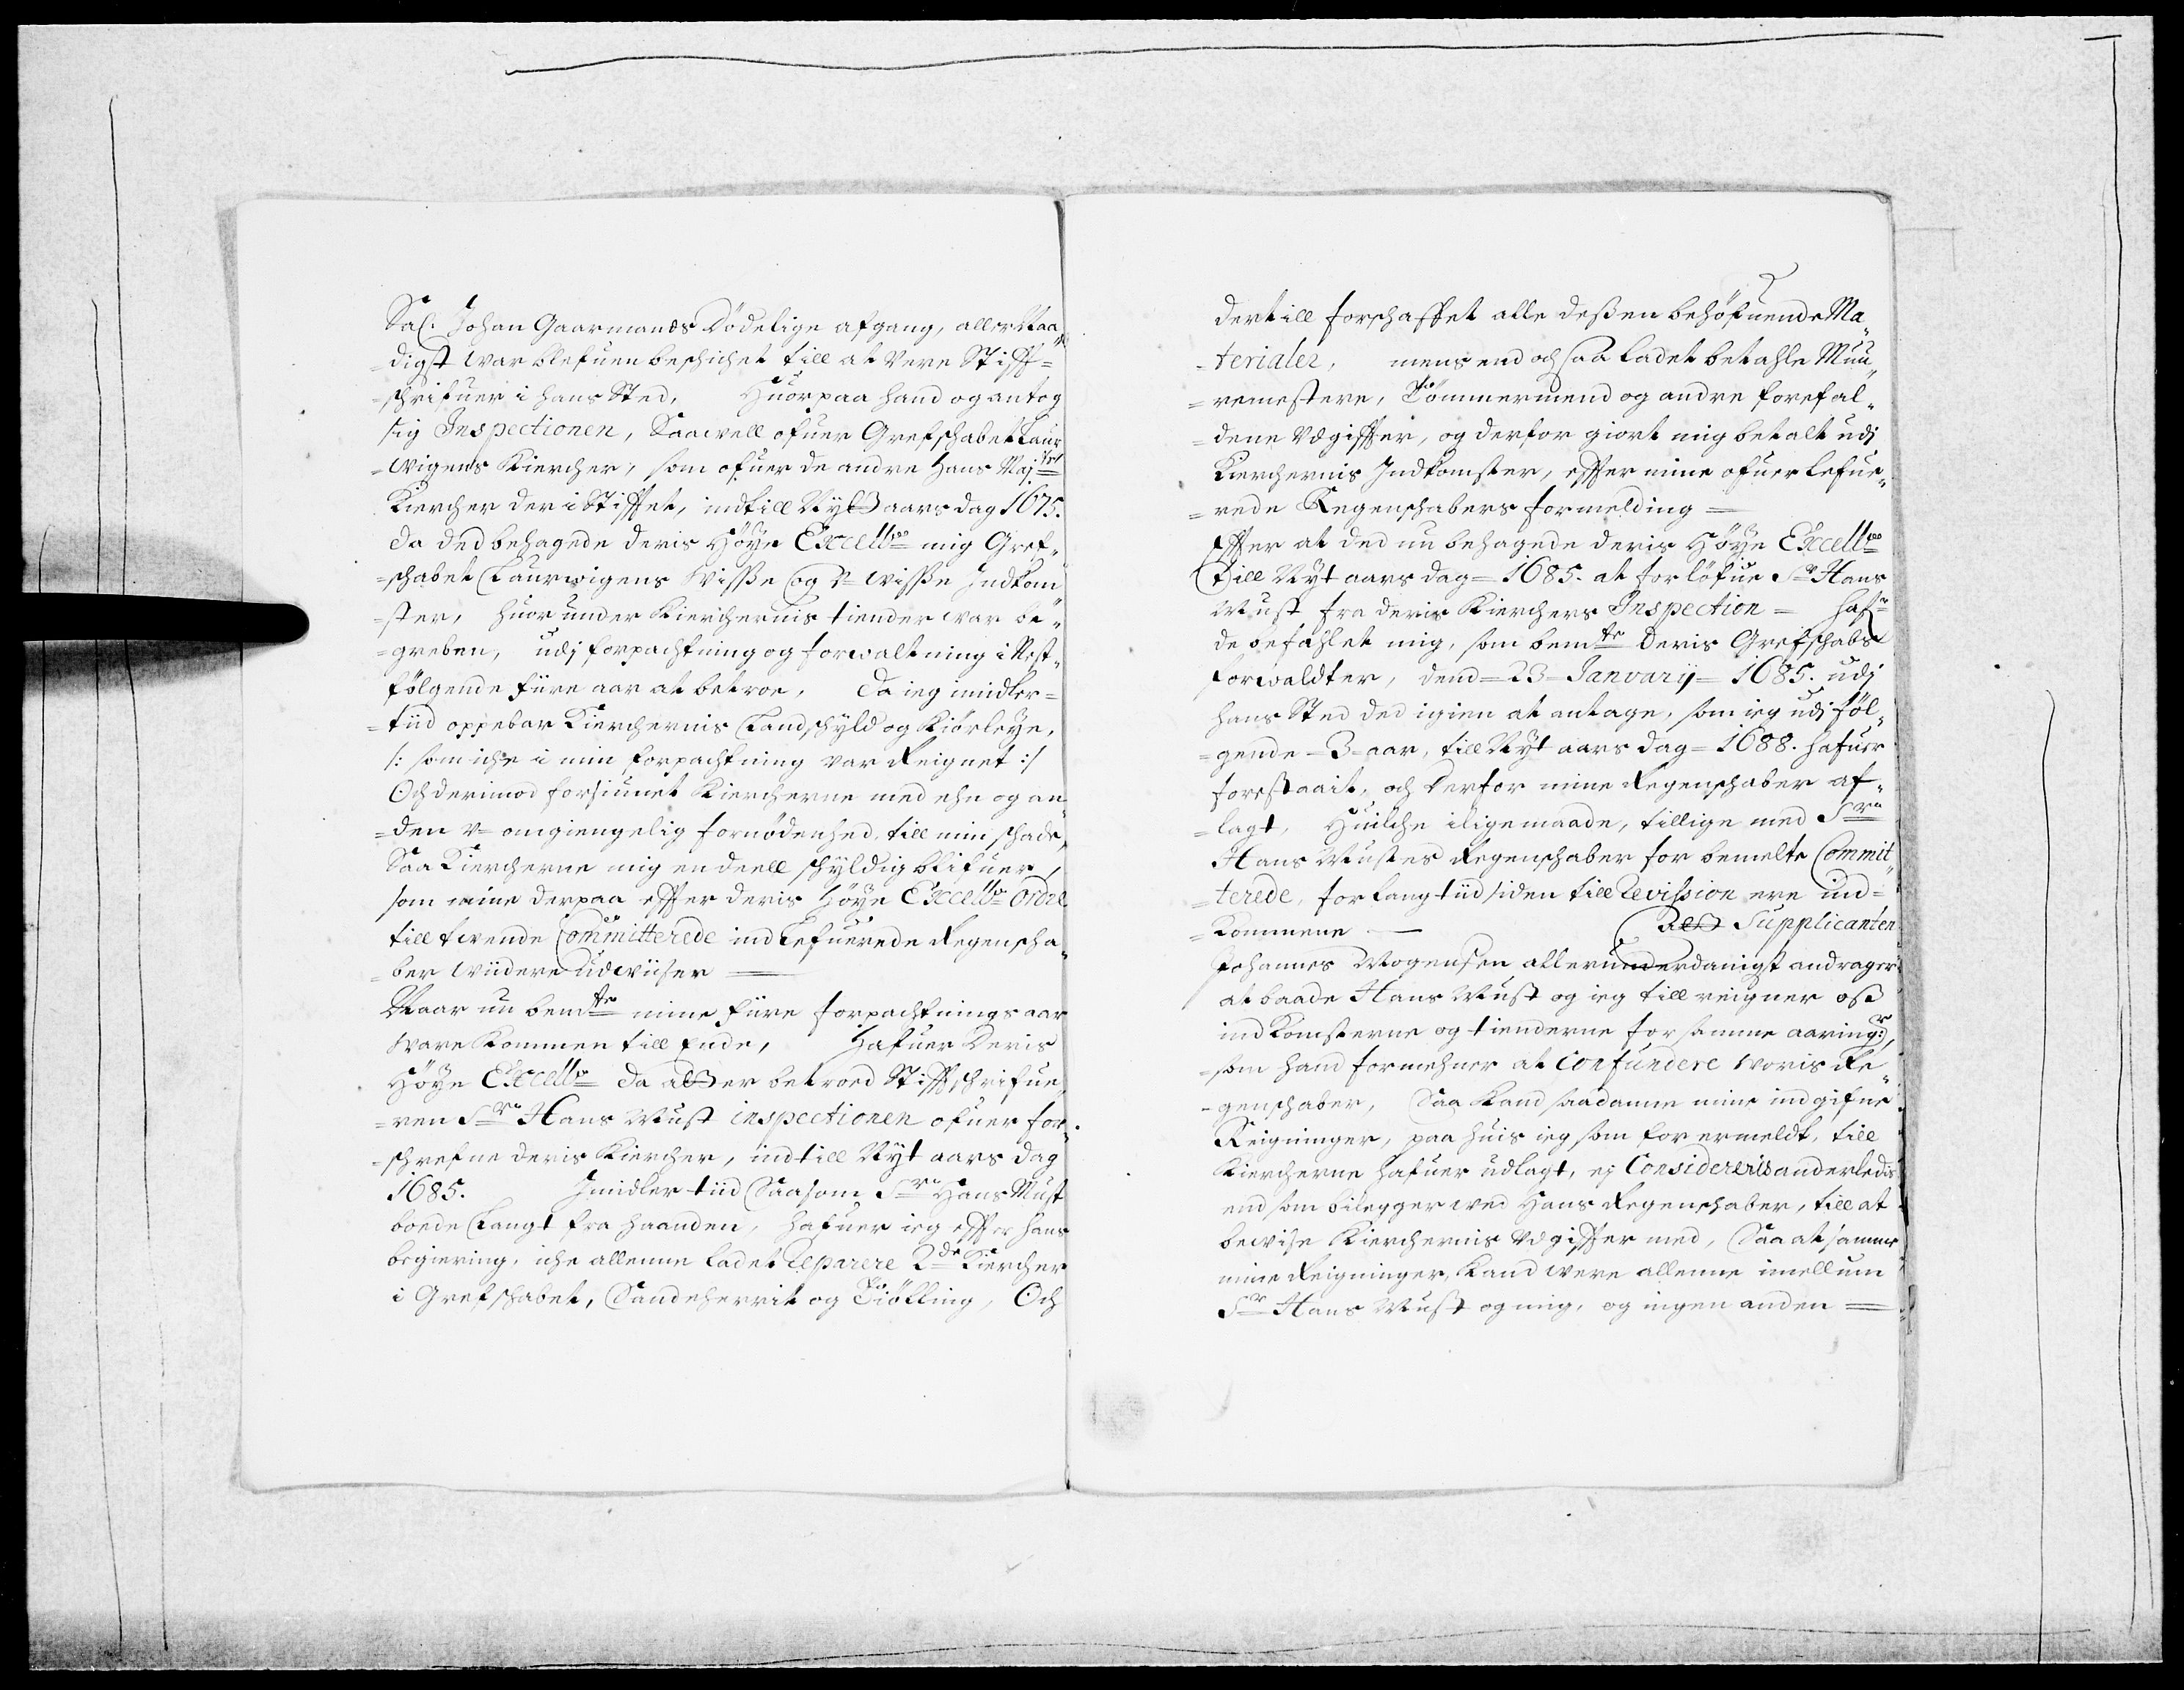 Sal: Johan Gaarmands Dödelige afgang, aller Naa„
=digst war blefuen beschichet till at vere Stiff=
=schrifuer i hans Sted, Huorpaa hand og antog
sig Inspectionen, Saavell ofuer Grefschabet Laur
=wigens Kiercher, som ofuer de andre Hans Maj:ts
Kiercher der i Stiftet, indtill Nyt aars dag 1675.
da ded behagede deris Höye Excell:ce mig Gref„
=schabet Laurwigens Visse og U= wisse Indkom
=ster, huorunder Kierchernis tiender war be„
=greben, udj forpachtning og forwaltning i Nest„
følgende fiire aar at betroe, da ieg imidler=
=tiid oppebar Kierchernis Landschyld og Kiörleye,
/: som iche i min forpachtning var Reignet :/
Och derimod forsiunet Kiercherne med ehn og an„
=den u= omgiengelig fornödenhed, till min schade,
Saa Kiercherne mig en deell schyldig blifuer,
som mine derpaa effter deris Höye Excell:ce Ordre
till tvende Committerede ind Lefuerede Regenscha„
=ber widere udwiiser —
Naar nu bem:te mine fiire forpachtnings aar
ware kommen till Ende, Hafuer Deris
Höye Excell:ce da alß er betroed Stiffschrifue„
=ren S:r Hans Must inspectionen ofuer for„
=schrefne deris Kiercher, indtill Nyt aars dag
1685. Imidler tiid Saasom S:r Hans Must
boede Langt fra haanden, hafuer ieg effter hans
begiering, iche allenne ladet Reparere 2:de Kiercher
i Grefschabet, Sandeherrit og Tiölling, Och
dertill forschaffet alle deßen behöfuende Ma„
=terialer, mens end och saa ladet betahle Muu„
=remestere, Tömmermend og andre forefal„
=dene Udgiffter, og derfor giort mig betalt udj
Kierchernis Indkomster, effter mine ofuer lefue„
=rede Regenschabers formelding =
Effter at ded nu behagede deris Höye Excell:ce
Till Nyt aars dag = 1685. at forlöfue S:r Hans
Must fra deris Kierchers Inspection = haf=
de befahlet mig, som bem:te Deris Grefschabs
forwaldter, dend = 23 = January = 1685. udj
hans Sted ded igien at antage, som ieg udj föl„
=gende = 3 = aar, till Nyt aars dag = 1688. hafuer
forestaait, och derfor mine Regenschaber af„
=lagt, Huilche iligemaade, tillige med S:r
Hans Mustes Regenschaber for bemelte Commit„
=terede, for lang tiid siden till Revission ere ind=
=kommene — Supplicanten
Johannes Mogensen allerunderdanigst andrager
at baade Hans Must og ieg till reigner oß
indkomsterne og tienderne for samme aaring:r,
=som hand formehner at Confundere woris Re„
=genschaber, Saa kand saadanne mine indgifne
Reigninger, paa huis ieg som for ermeldt, till
Kiercherne hafuer udlagt, ej Considereris anderledis
end som bilegger ved Hans Regenschaber, till at
bevise Kierchernis Udgiffter med, Saa at samme
mine Reigninger, kand were allenne imellum
S:r Hans Must og mig, og ingen anden =